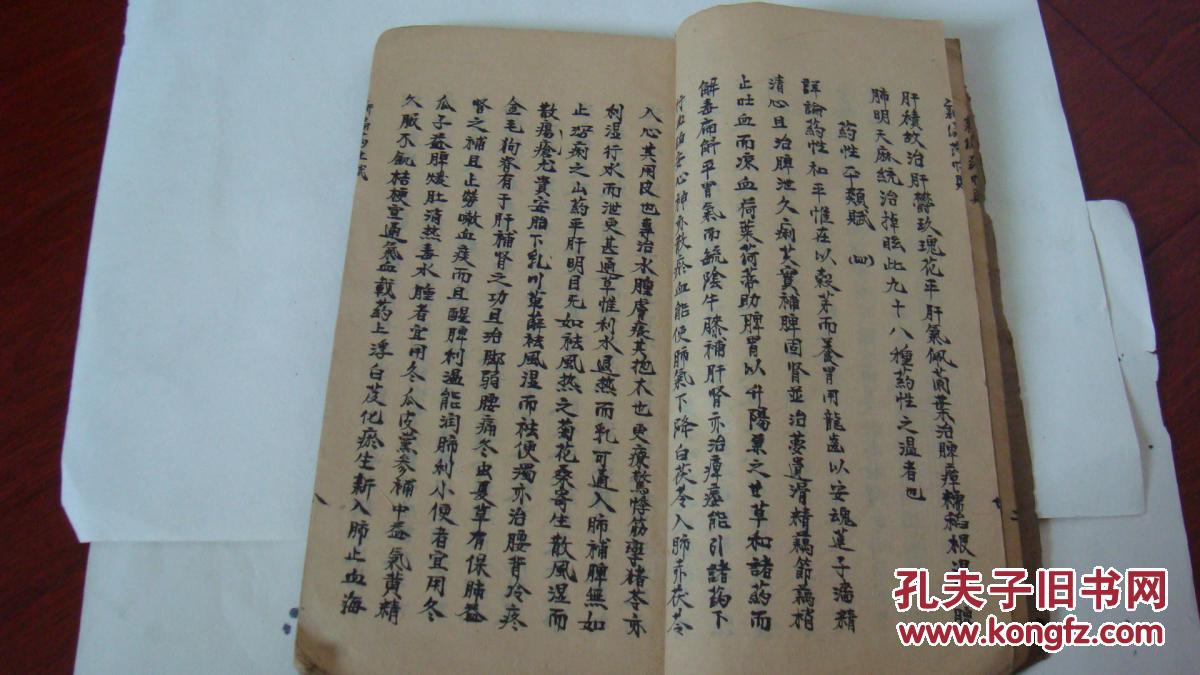 肝積故治肝鬱玫瑰花平肝氣佩蘭葉治脾瘴糯稻根
肺明天麻統治掉眩此九十八種葯性之温者也
葯性平類賦 (四)
詳論葯性和平惟在以穀芽而養胃用龍齒以安魂蓮子濇精
清心且治脾泄久痢芡實補脾固腎並治夢遺滑精藕節藕梢
止吐血而凉血荷葉荷蒂助脾胃以升陽粟之甘草和諸葯而
解毒扁斛平胃氣而毓陰牛膝補肝腎亦治瘴瘧能引諸葯下
行故治安心神亦救瘀血能使肺氣下降白茯苓入肺赤茯苓
入心其用皮也專治水腫膚瘊其抱木也更療驚悸筋攣猪苓亦
利湿行水而泄更甚通草惟利水退热而乳可通入肺補脾無如
止瀉痢之山葯平肝明目无如祛風热之菊花桑寄生散風湿而
散瘍瘡尤貴安胎下乳川萆薢祛風湿而祛便濁亦治腰背冷疼
金毛狗脊有于肝補腎之功且治脚弱腰痛冬虫夏草有保肺益
腎之補且止勞嗽血痰而且醒脾利温能润肺利小便者宜用冬
瓜子益脾煖肚清热善水腫者宜用冬瓜皮黨參補中益氣黄精
久服不飢桔梗宣通氣血載葯上浮白芨化瘀生新入肺止血海
八
孔夫子旧书网
www.kongfz.com